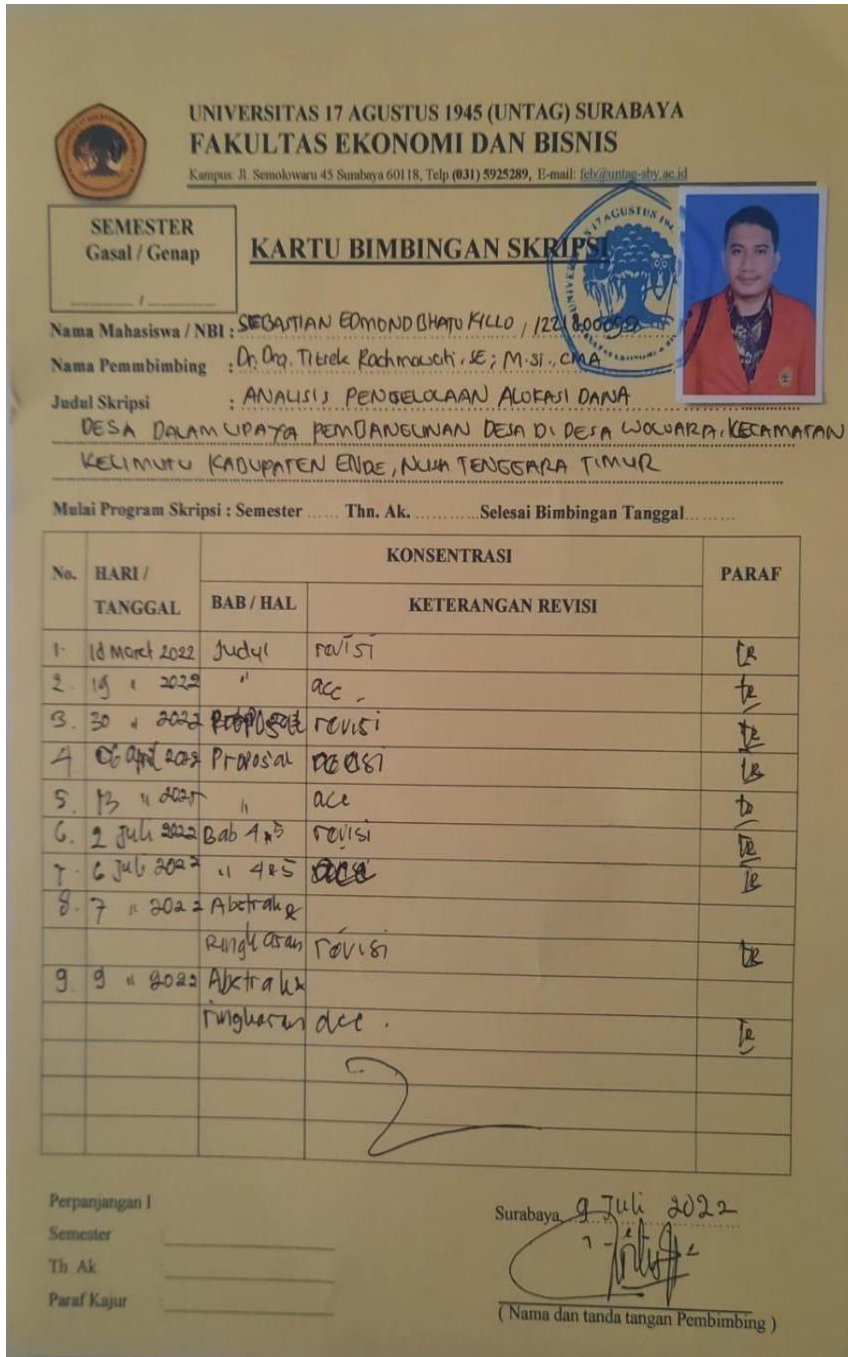 UNIVERSITAS 17 AGUSTUS 1945 (UNTAG) SURABAYA
FAKULTAS EKONOMI DAN BISNIS
Kampus: Jl. Semolowaru 45 Surabaya 60118, Telp (031) 5925289, E-mail: feb@untag-sby.ac.id
SEMESTER
Gasal / Genap
............ / ............
KARTU BIMBINGAN SKRIPSI
Nama Mahasiswa / NBI : SEBASTIAN EDMOND BHATO KILLO /
Nama Pemmbimbing : Dr. Dra. Titiek Rachmawati. SE; M.si., CMA
Judul Skripsi : ANALISIS PENGELOLAAN ALOKASI DANA
DESA DALAM UPAYA PEMBANGUNAN DESA DI DESA WOLOARA, KECAMATAN
KELIMUTU KABUPATEN ENDE, NUSA TENGGARA TIMUR
Mulai Program Skripsi : Semester ...... Thn. Ak. ............Selesai Bimbingan Tanggal.........
No. HARI / TANGGAL KONSENTRASI PARAF
BAB / HAL KETERANGAN REVISI
1. 18 Maret 2022 Judul revisi TR
2. 19 " 2022 " acc. TR
3. 30 " 2022 Proposal revisi TR
4 06 April 2022 Proposal TR
5. 13 " " acc TR
6. 2 Juli 2022 Bab 4&5 revisi TR
7. 6 Juli 2022 " 4&5 acc TR
8. 7 " 2022 Abstrak &
Ringkasan revisi TR
9. 9 " 2022 Abstrak &
ringkasan acc. TR
Perpanjangan I
Semester :
Th Ak :
Paraf Kajur :
Surabaya, 9 Juli 2022
( Nama dan tanda tangan Pembimbing )